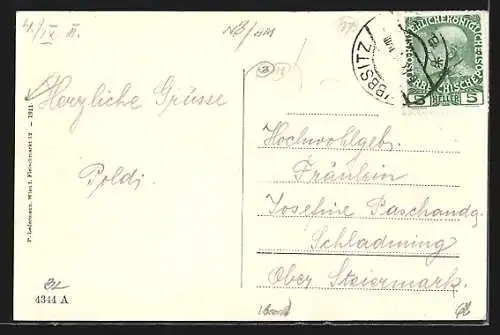 4./IX. 11.
Herzliche Grüsse
Poldi.
P. Ledermann, Wien I. Fleischmarkt 12 – 1911
4344 A
YBBSITZ
KAISERLICHE KÖNIGLICHE ÖSTERREICHISCHE POST
5 HELLER 5
Hochwohlgeb.
Fräulein
Josefine Paschandg.
Schladming
Ober Steiermark.